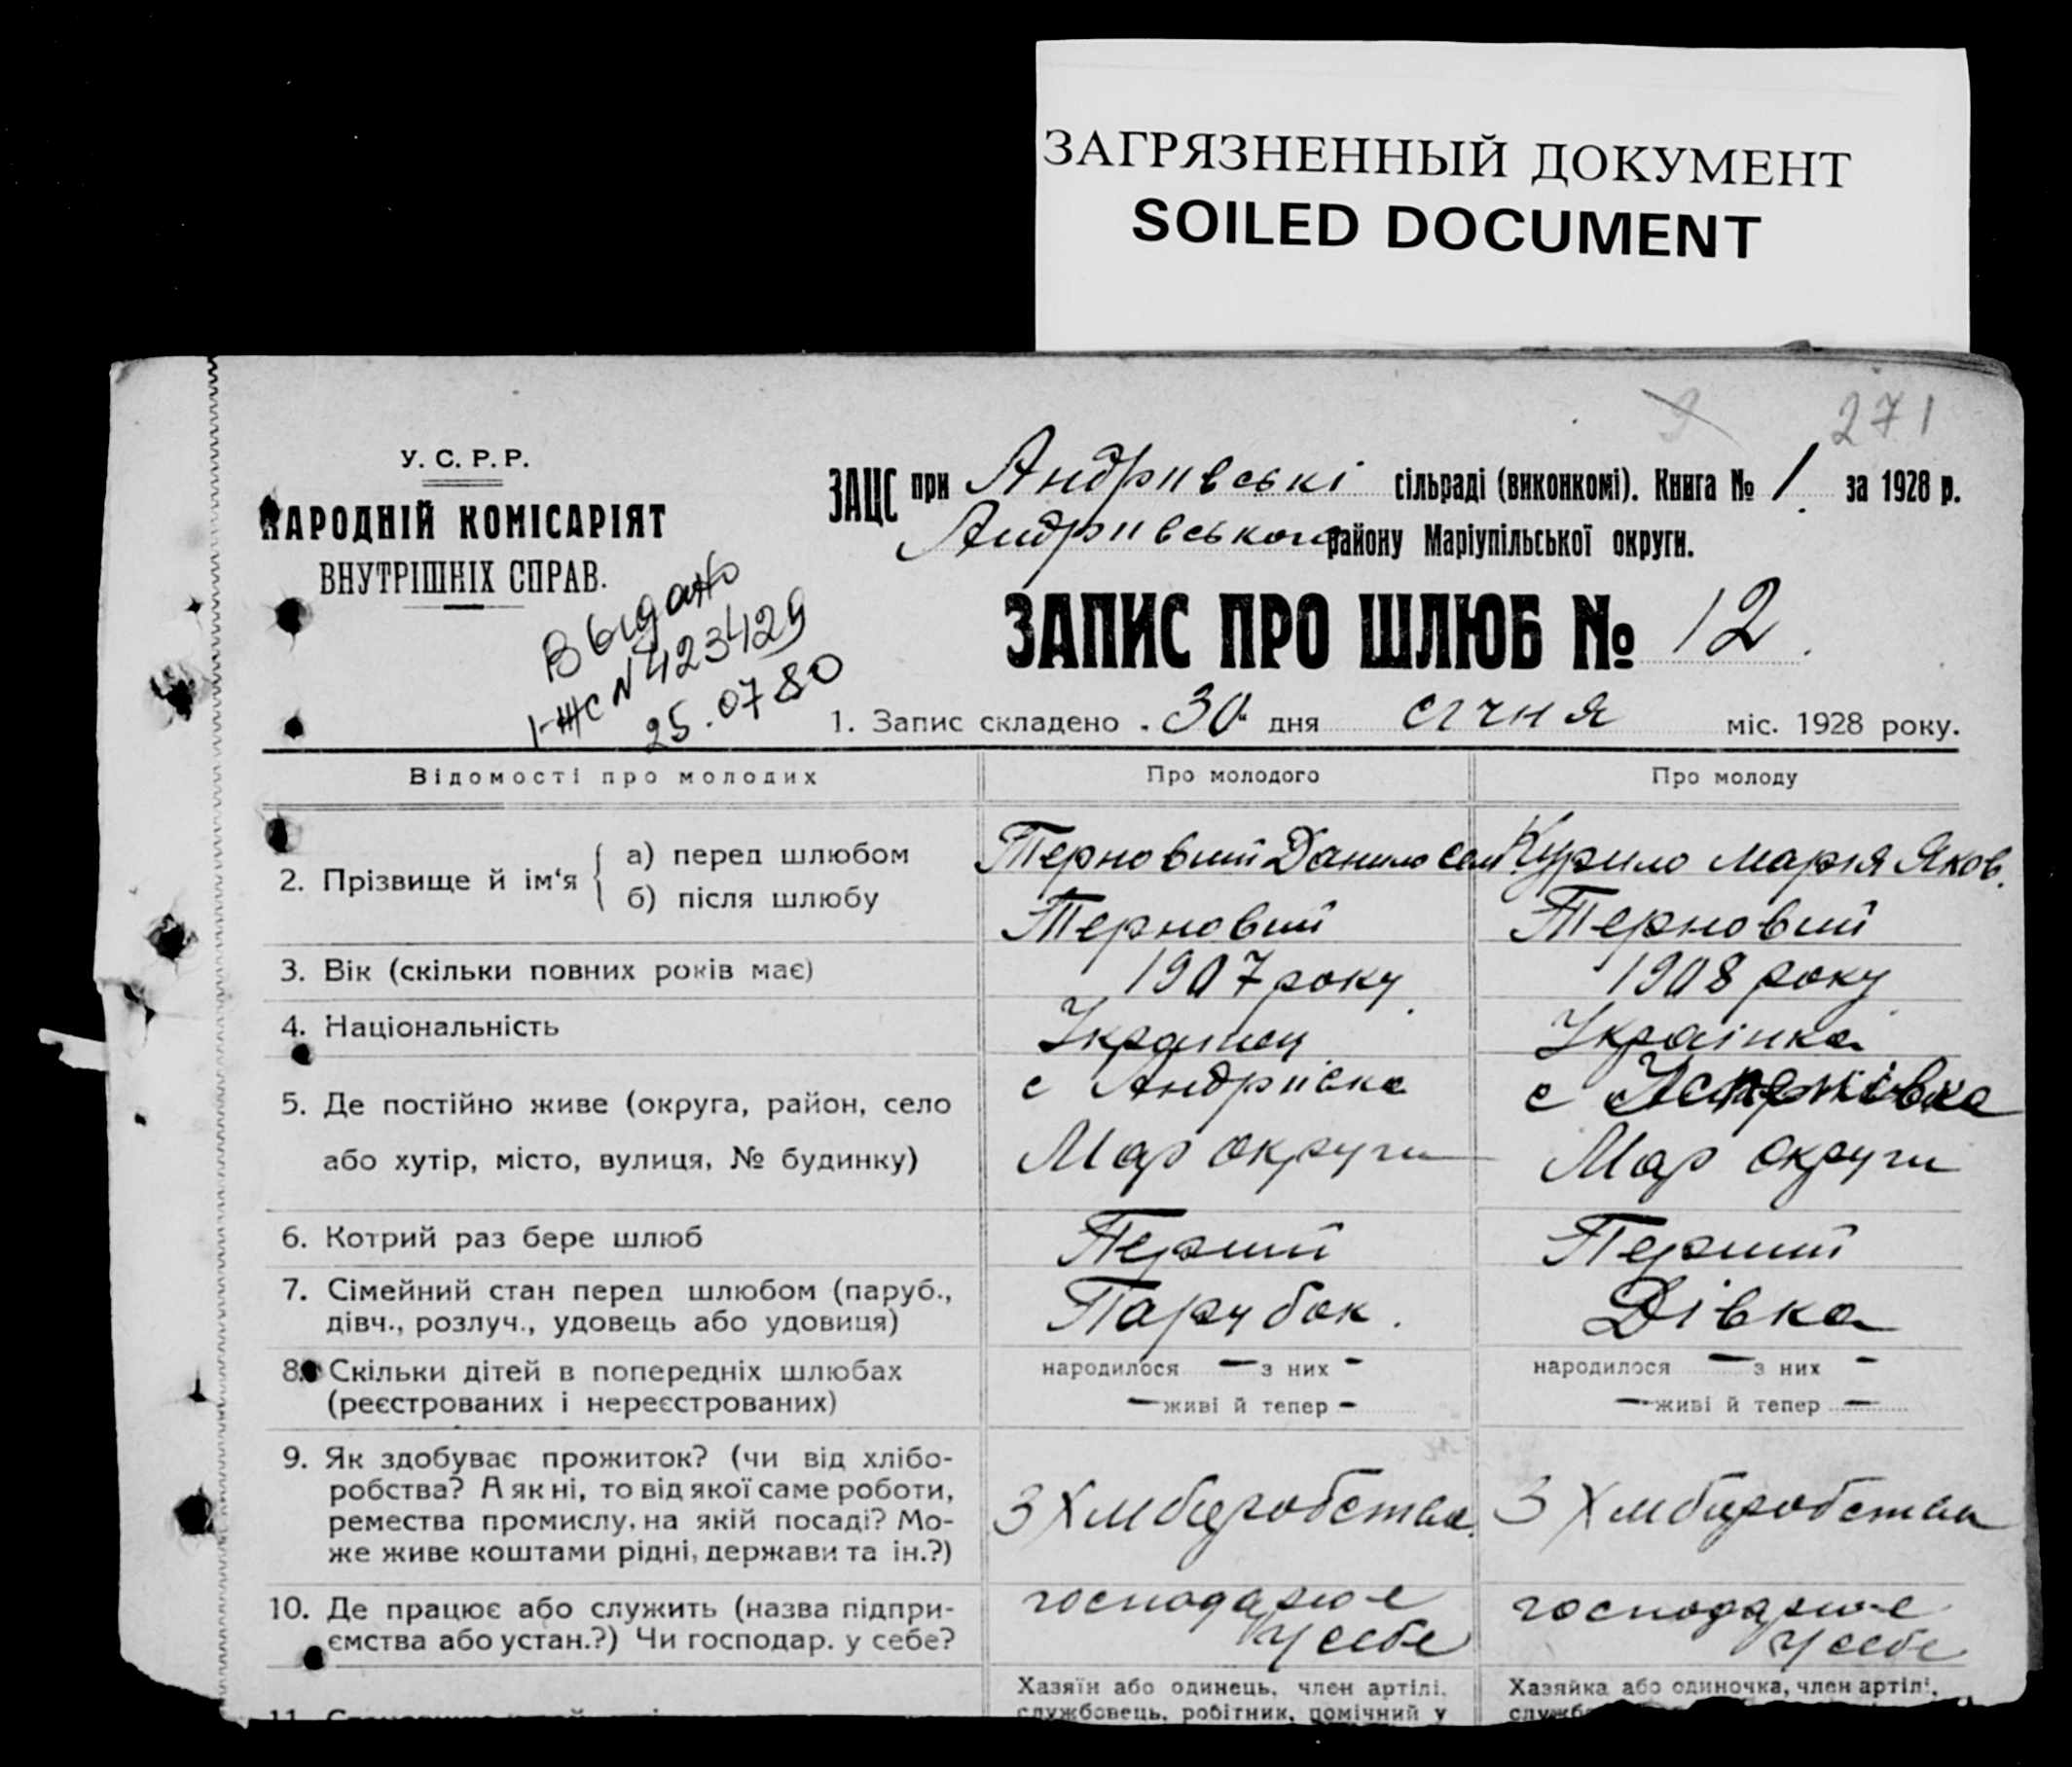 ЗАГРЯЗНЕННЫЙ ДОКУМЕНТ
SOILED DOCUMENT
271
У. С. Р. Р.
НАРОДНІЙ КОМІСАРІЯТ
ВНУТРІШНІХ СПРАВ.
ЗАЦС при Андриівські сільраді (виконкомі). Книга № 1. за 1928 р.
Андриівського району Маріупільської округи.
Выдано
I-ЖС N 423429
25.07 80
ЗАПИС ПРО ШЛЮБ № 12.
1. Запис складено 30 дня січня міс. 1928 року.
Відомості про молодих Про молодого Про молоду
2. Прізвище й ім‘я а) перед шлюбом Терновий Данило Сем Курило Марія Яков.
б) після шлюбу Терновий Терновий
3. Вік (скільки повних років має) 1907 року 1908 року
4. Національність Українец Українка
5. Де постійно живе (округа, район, село с Андриівка с
або хутір, місто, вулиця, № будинку) Мар округи Мар округи
6. Котрий раз бере шлюб Перший Перший
7. Сімейний стан перед шлюбом (паруб., Парубок. Дівка
дівч., розлуч., удовець або удовиця)
8. Скільки дітей в попередніх шлюбах народилося — з них - народилося — з них -
(реєстрованих і нереєстрованих) — живі й тепер - — живі й тепер —
9. Як здобуває прожиток? (чи від хлібо-
робства? А як ні, то від якої саме роботи, З Хлібиробства З Хлібиробства
ремества промислу, на якій посаді? Мо-
же живе коштами рідні, держави та ін.?)
10. Де працює або служить (назва підпри- господарює господарює
ємства або устан.?) Чи господар. у себе? у себе у себе
Хазяїн або одинець, член артілі, Хазяйка або одиночка, член артілі,
11. службовець, робітник, помічний у